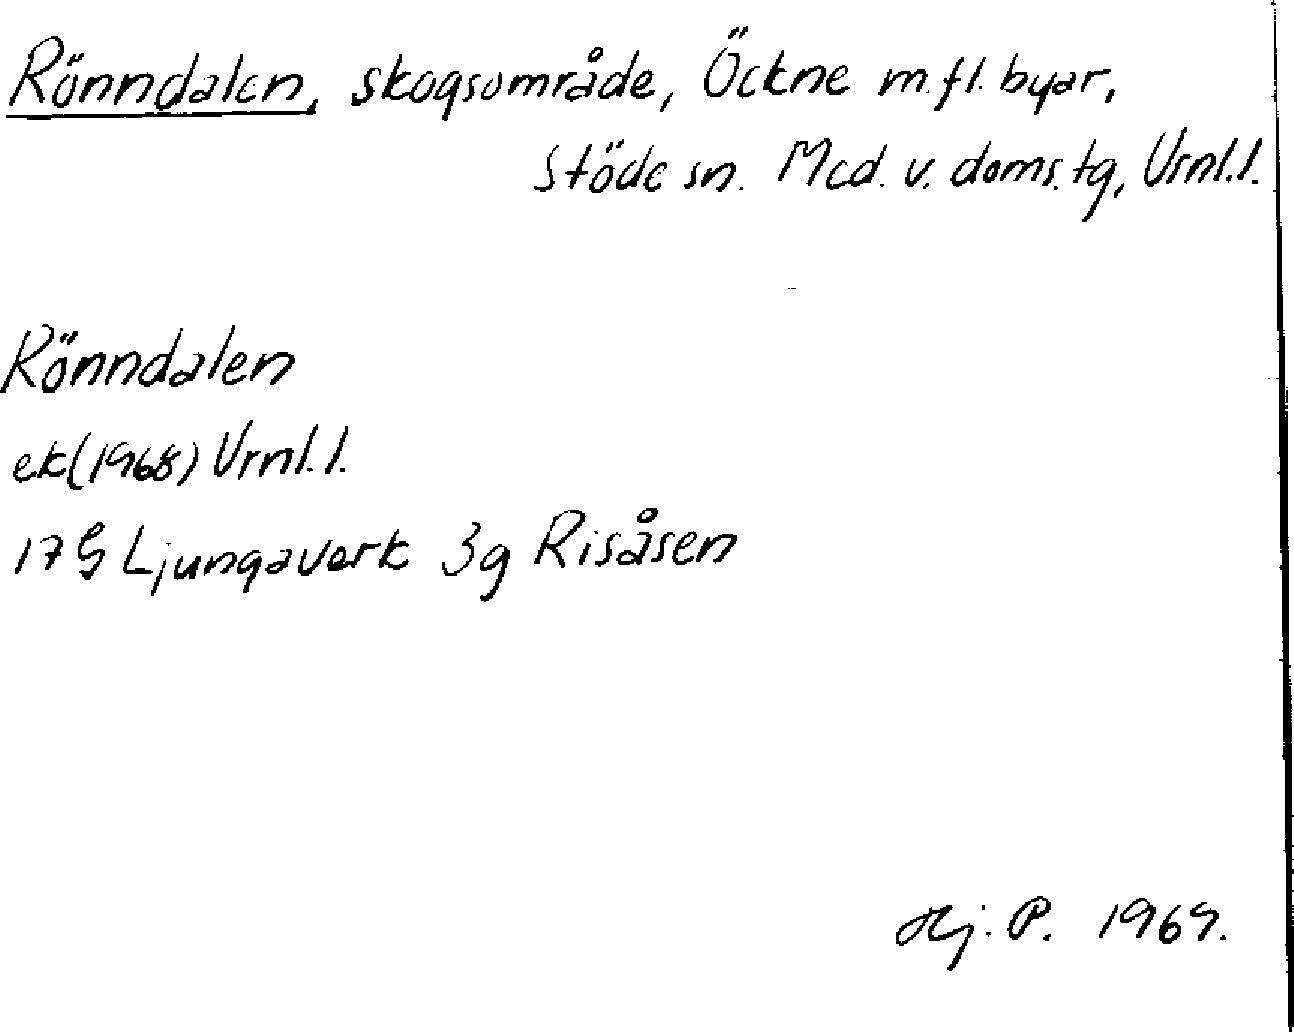 Rönndalen, skogsområde, Öckne m.fl. byar,
Stöde sn. Med. v. doms. tg, Vrnl.l.
Rönndalen
ek(1968) Vrnl.l.
17G Ljungaverk 3g Risåsen
Hj. P. 1969.